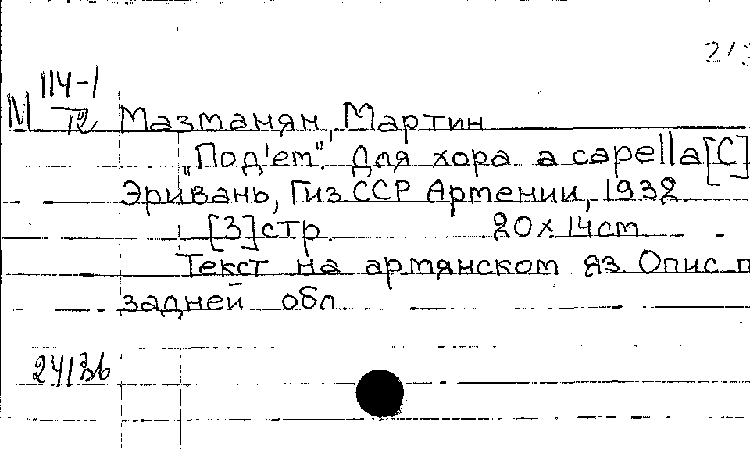 213
М 114-1
12
Мазманян, Мартин
„Под'ем". Для хора a capella [С]
Эривань, Гиз ССР Армении, 1932
[3] стр. 20 x 14 cm
Текст на армянском яз. Опис п
задней обл